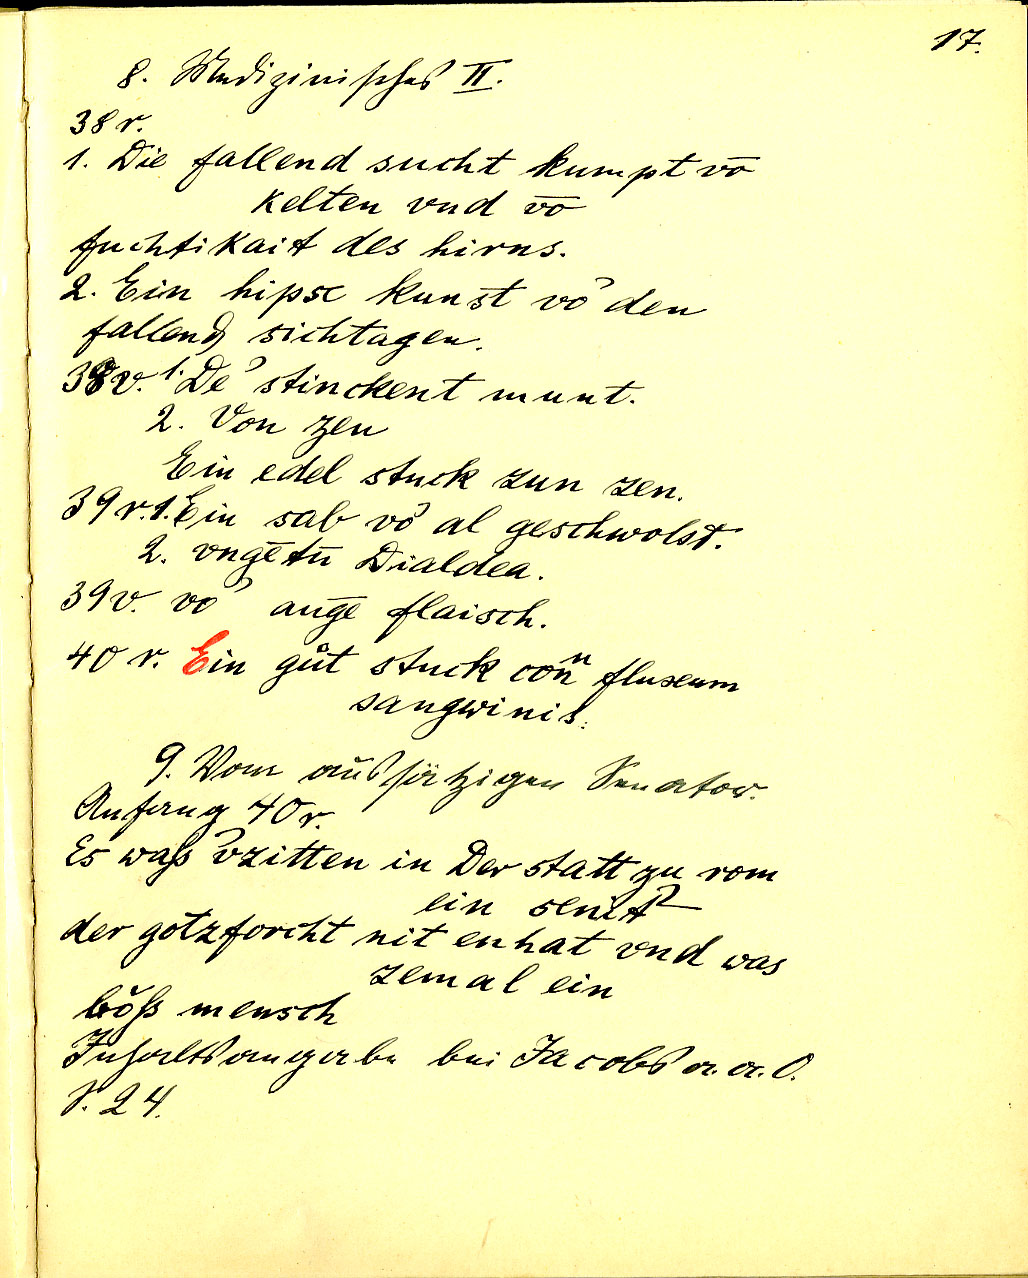 17.
8. Medizinisches II.
38 r.
1. Die fallend sucht kumpt vō
kelten vnd vō
fuchtikait des hirns.
2. Ein hipsc kunst vo' den
fallend sichtagen.
38v. 1. De' stinckent munt.
2. Von zen
Ein edel stuck zun zen.
39 r. 1. Ein salb vo' al geschwolst.
2. vngētū Dialdea.
39v. vo' auge flaisch.
40 r. Ein gůt stuck con fluxum
sangwinis.
9. Vom aussätzigen Senator.
Anfang 40 r.
Es waß vzitten in Der statt zu rom
ein
der gotzforcht nit enhat vnd was
zemal ein
böß mensch
Inhaltsangabe bei Jacobs a. a. O.
S. 24.